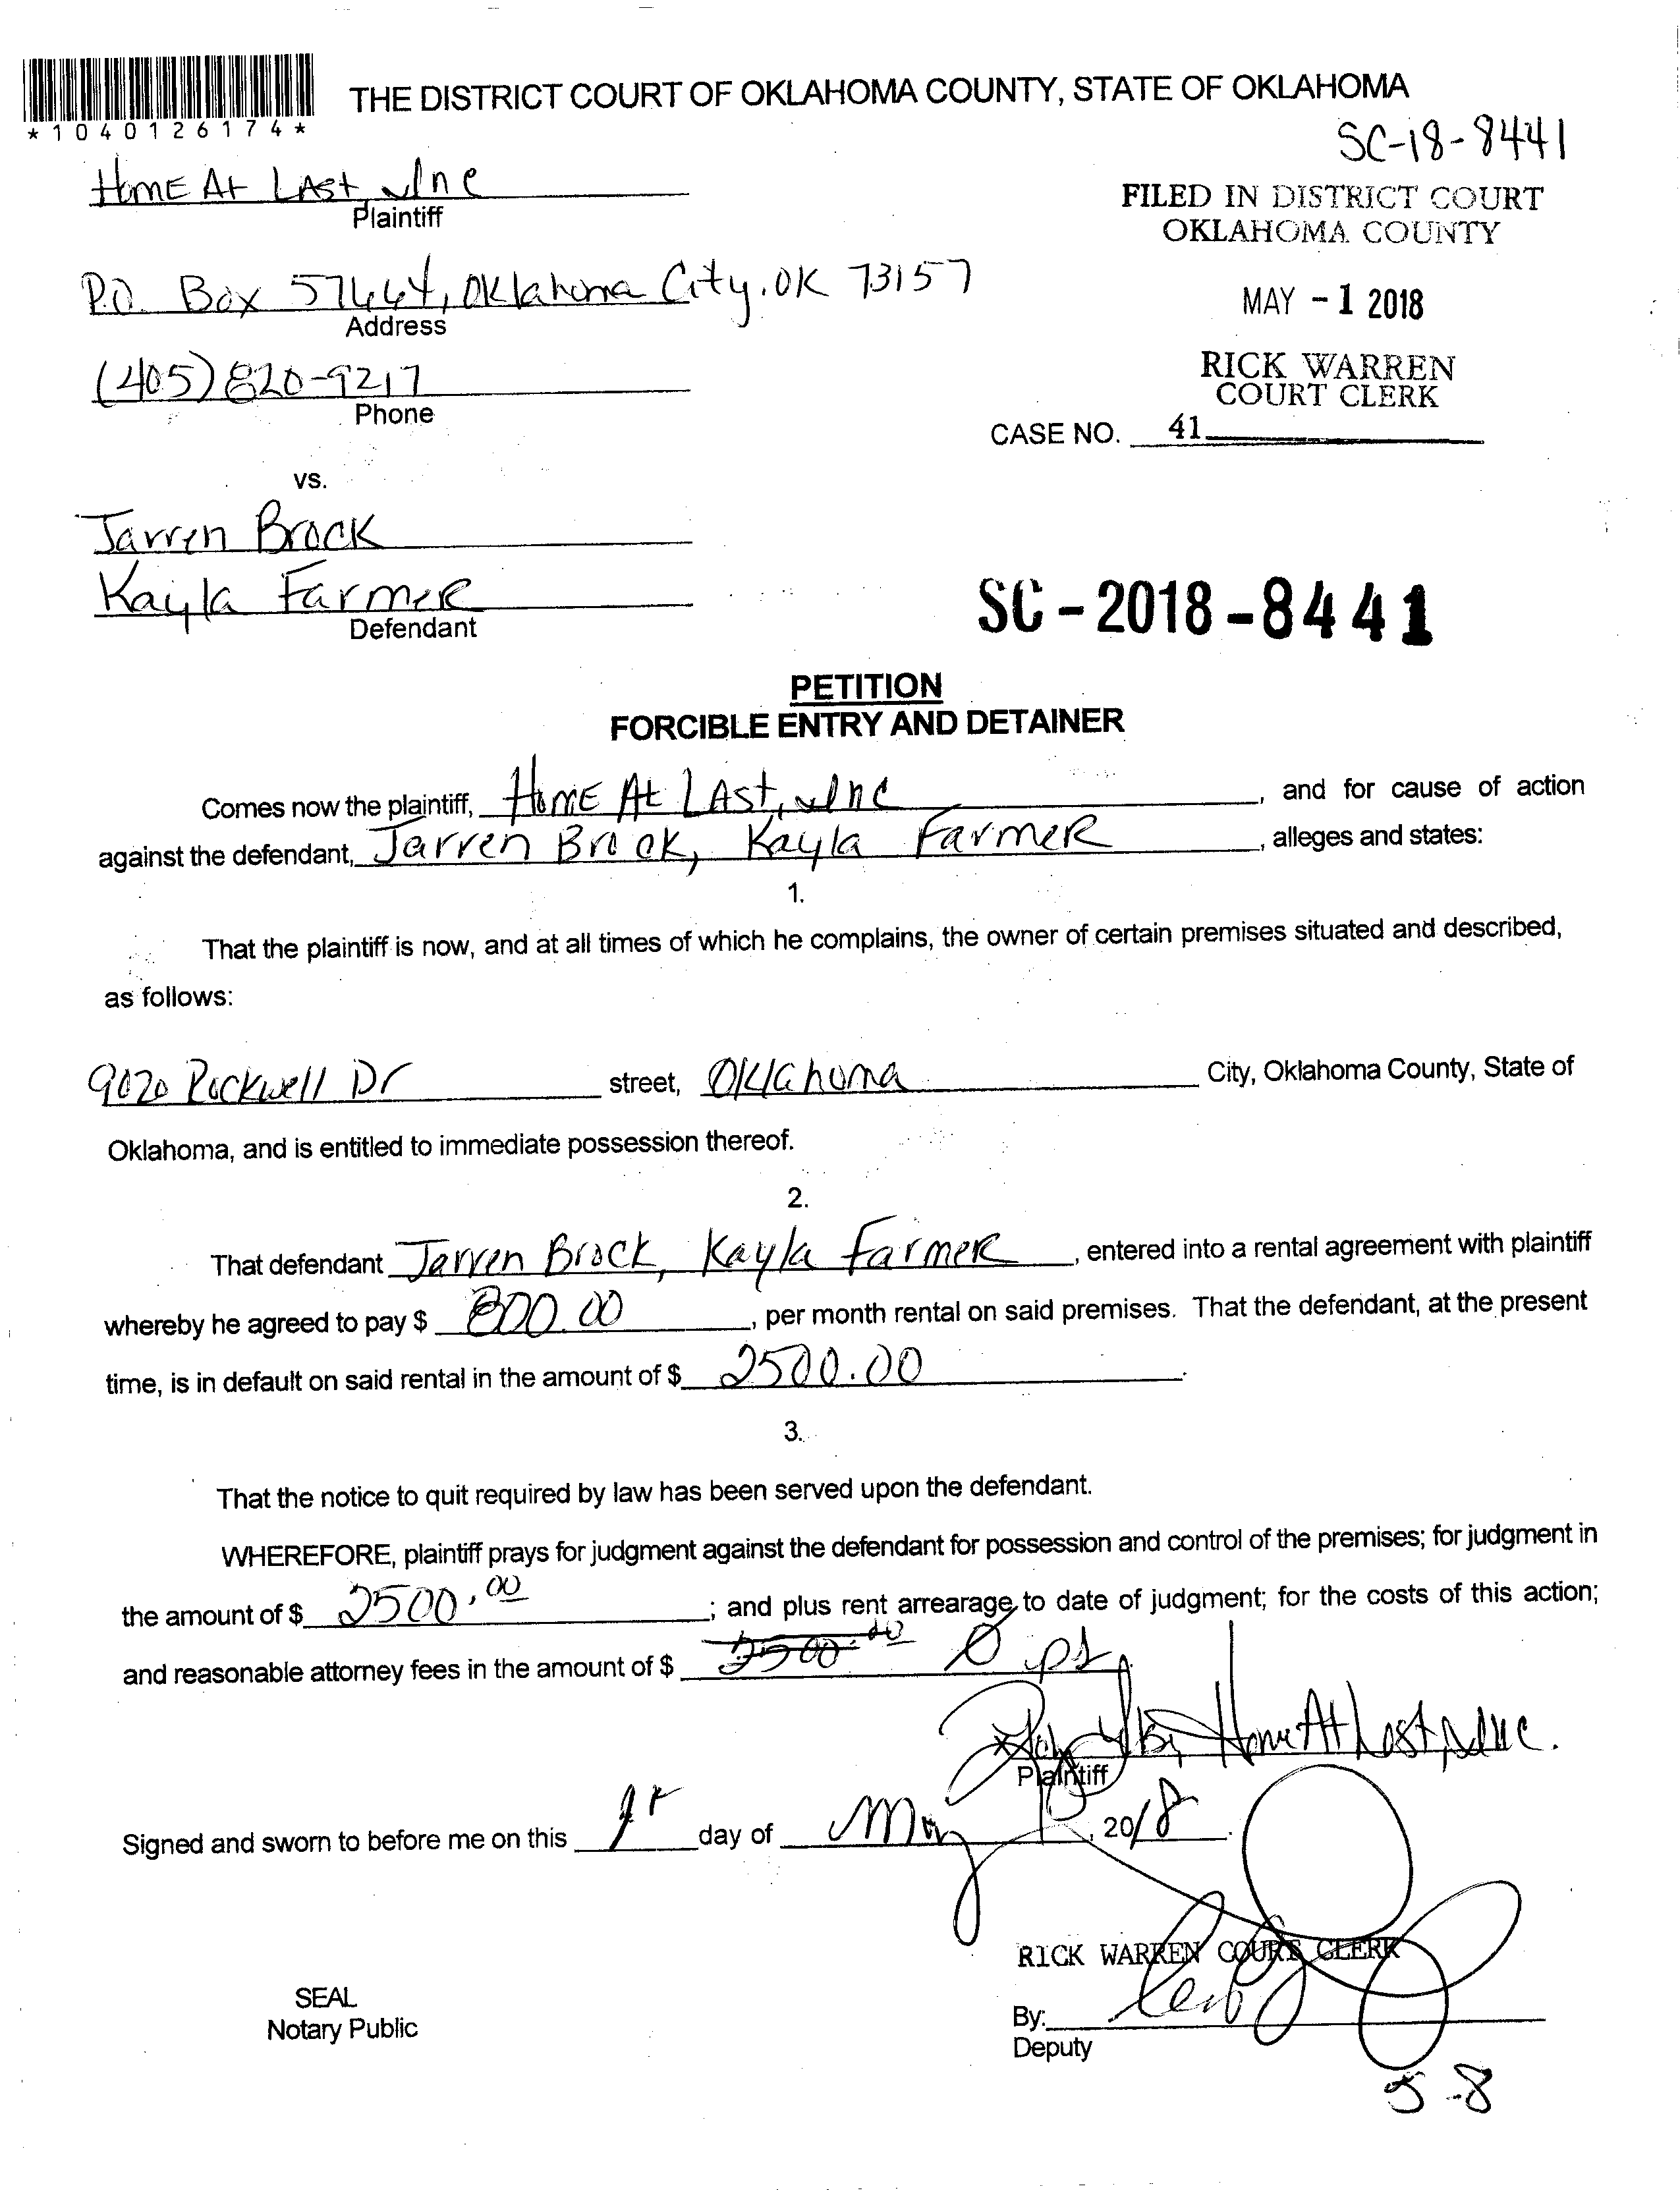 *1040126174*
THE DISTRICT COURT OF OKLAHOMA COUNTY, STATE OF OKLAHOMA
SC-18-8441
Home At Last Inc
Plaintiff
FILED IN DISTRICT COURT
OKLAHOMA COUNTY
P.O. Box 57664, Oklahoma City, OK 73157
Address
MAY -1 2018
(405) 820-9217
Phone
RICK WARREN
COURT CLERK
CASE NO. 41
vs.
Jarren Brock
Kayla Farmer
Defendant
SC-2018-8441
PETITION
FORCIBLE ENTRY AND DETAINER
Comes now the plaintiff, Home At Last, Inc, and for cause of action
against the defendant, Jarren Brock, Kayla Farmer, alleges and states:
1.
That the plaintiff is now, and at all times of which he complains, the owner of certain premises situated and described,
as follows:
9020 Rockwell Dr street, Oklahoma City, Oklahoma County, State of
Oklahoma, and is entitled to immediate possession thereof.
2.
That defendant Jarren Brock, Kayla Farmer, entered into a rental agreement with plaintiff
whereby he agreed to pay $ 800.00, per month rental on said premises. That the defendant, at the present
time, is in default on said rental in the amount of $ 2500.00.
3.
That the notice to quit required by law has been served upon the defendant.
WHEREFORE, plaintiff prays for judgment against the defendant for possession and control of the premises; for judgment in
the amount of $ 2500.00; and plus rent arrearage, to date of judgment; for the costs of this action;
and reasonable attorney fees in the amount of $ 2500.00 0
Home At Last, Inc.
Plaintiff
Signed and sworn to before me on this 1st day of May, 2018.
RICK WARREN COURT CLERK
SEAL
Notary Public
By:
Deputy
5-8